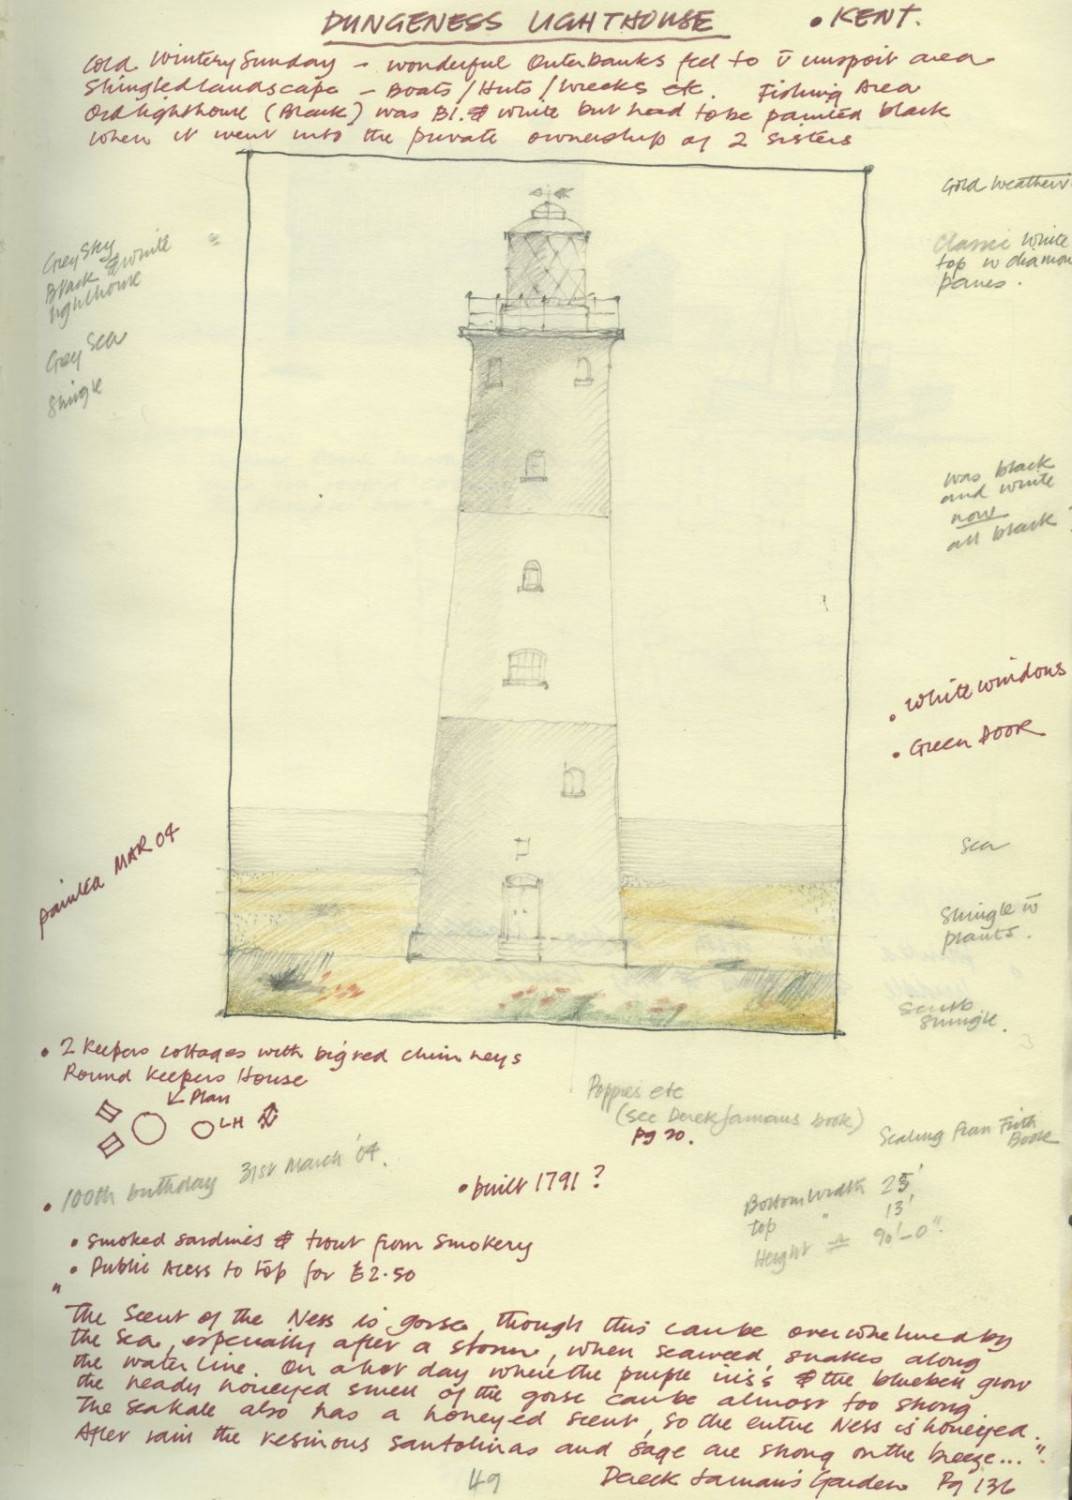 DUNGENESS LIGHTHOUSE • KENT.
Cold Wintery Sunday – wonderful Outerbanks feel to unspoit area
Shingled landscape – Boats / Huts / Wrecks etc. Fishing Area
Old lighthouse (Black) was Bl. & white but had to be painted black
when it went into the private ownership of 2 sisters
Gold Weatherv
Classic White
top w diamon
panes.
Grey Sky
Black & white
lighthouse
Grey Sea
Shingle
was black
and white
now
all black
• White windows
• Green DOOR
painted MAR 04
Sea
Shingle w
plants.
Scrub
Shingle.
• 2 Keepers cottages with big red chimneys
Round Keepers House
Plan
LH
Poppies etc
(see Derek Jarmans book)
Pg 20.
Scaling from Frith
Book
• 100th birthday 31st March '04.
• built 1791?
Bottom Width 25'
top " 13'
Height 90'-0".
• Smoked sardines & trout from Smokery
• Public Acess to top for £2.50
"The Scent of the Ness is gorse, though this can be overwhelmed by
the sea, especially after a storm, when seaweed snakes along
the water line. On a hot day when the purple iris's & the bluebell grow
the heady honeyed smell of the gorse can be almost too strong
The seakale also has a honeyed scent, so the entire Ness is honeyed.
After rain the resinous santolinas and sage are strong on the breeze..."
Dereck Jarman's Garden Pg 136
49